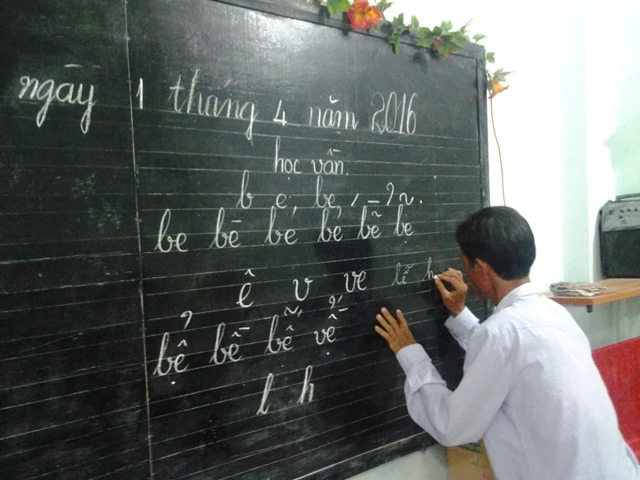 ngày 1 tháng 4 năm 2016
học vần.
b e, be, ʹ – ˀ ~ .
be bē bé bẻ bẽ bẹ
ê v ve lễ h
bệ bề bễ vệ
l h